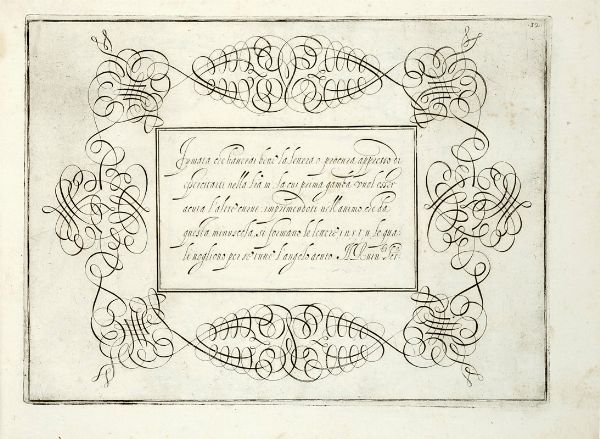 19
Jmitata che haverai bene la lettera o procura appresso di
essercitarti nella lra m, la cui prima gamba vuol esser
acuta l'altre ottuse, imprimendoti nell'animo che da
questa minuscola, si formano le lettere i n r t u le qua-
li vogliono per se tutte l'angolo acuto.